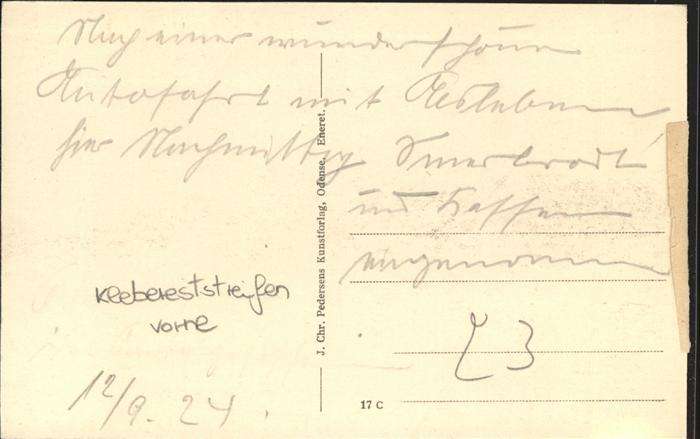 Nach einer wunderschönen
Autofahrt mit
hier Nachmittag Smørbrödt
und Kaffee
eingenommen
J. Chr. Pedersens Kunstforlag, Odense. Eneret.
Klebereststreifen
vorne
12/9. 24.
17 C